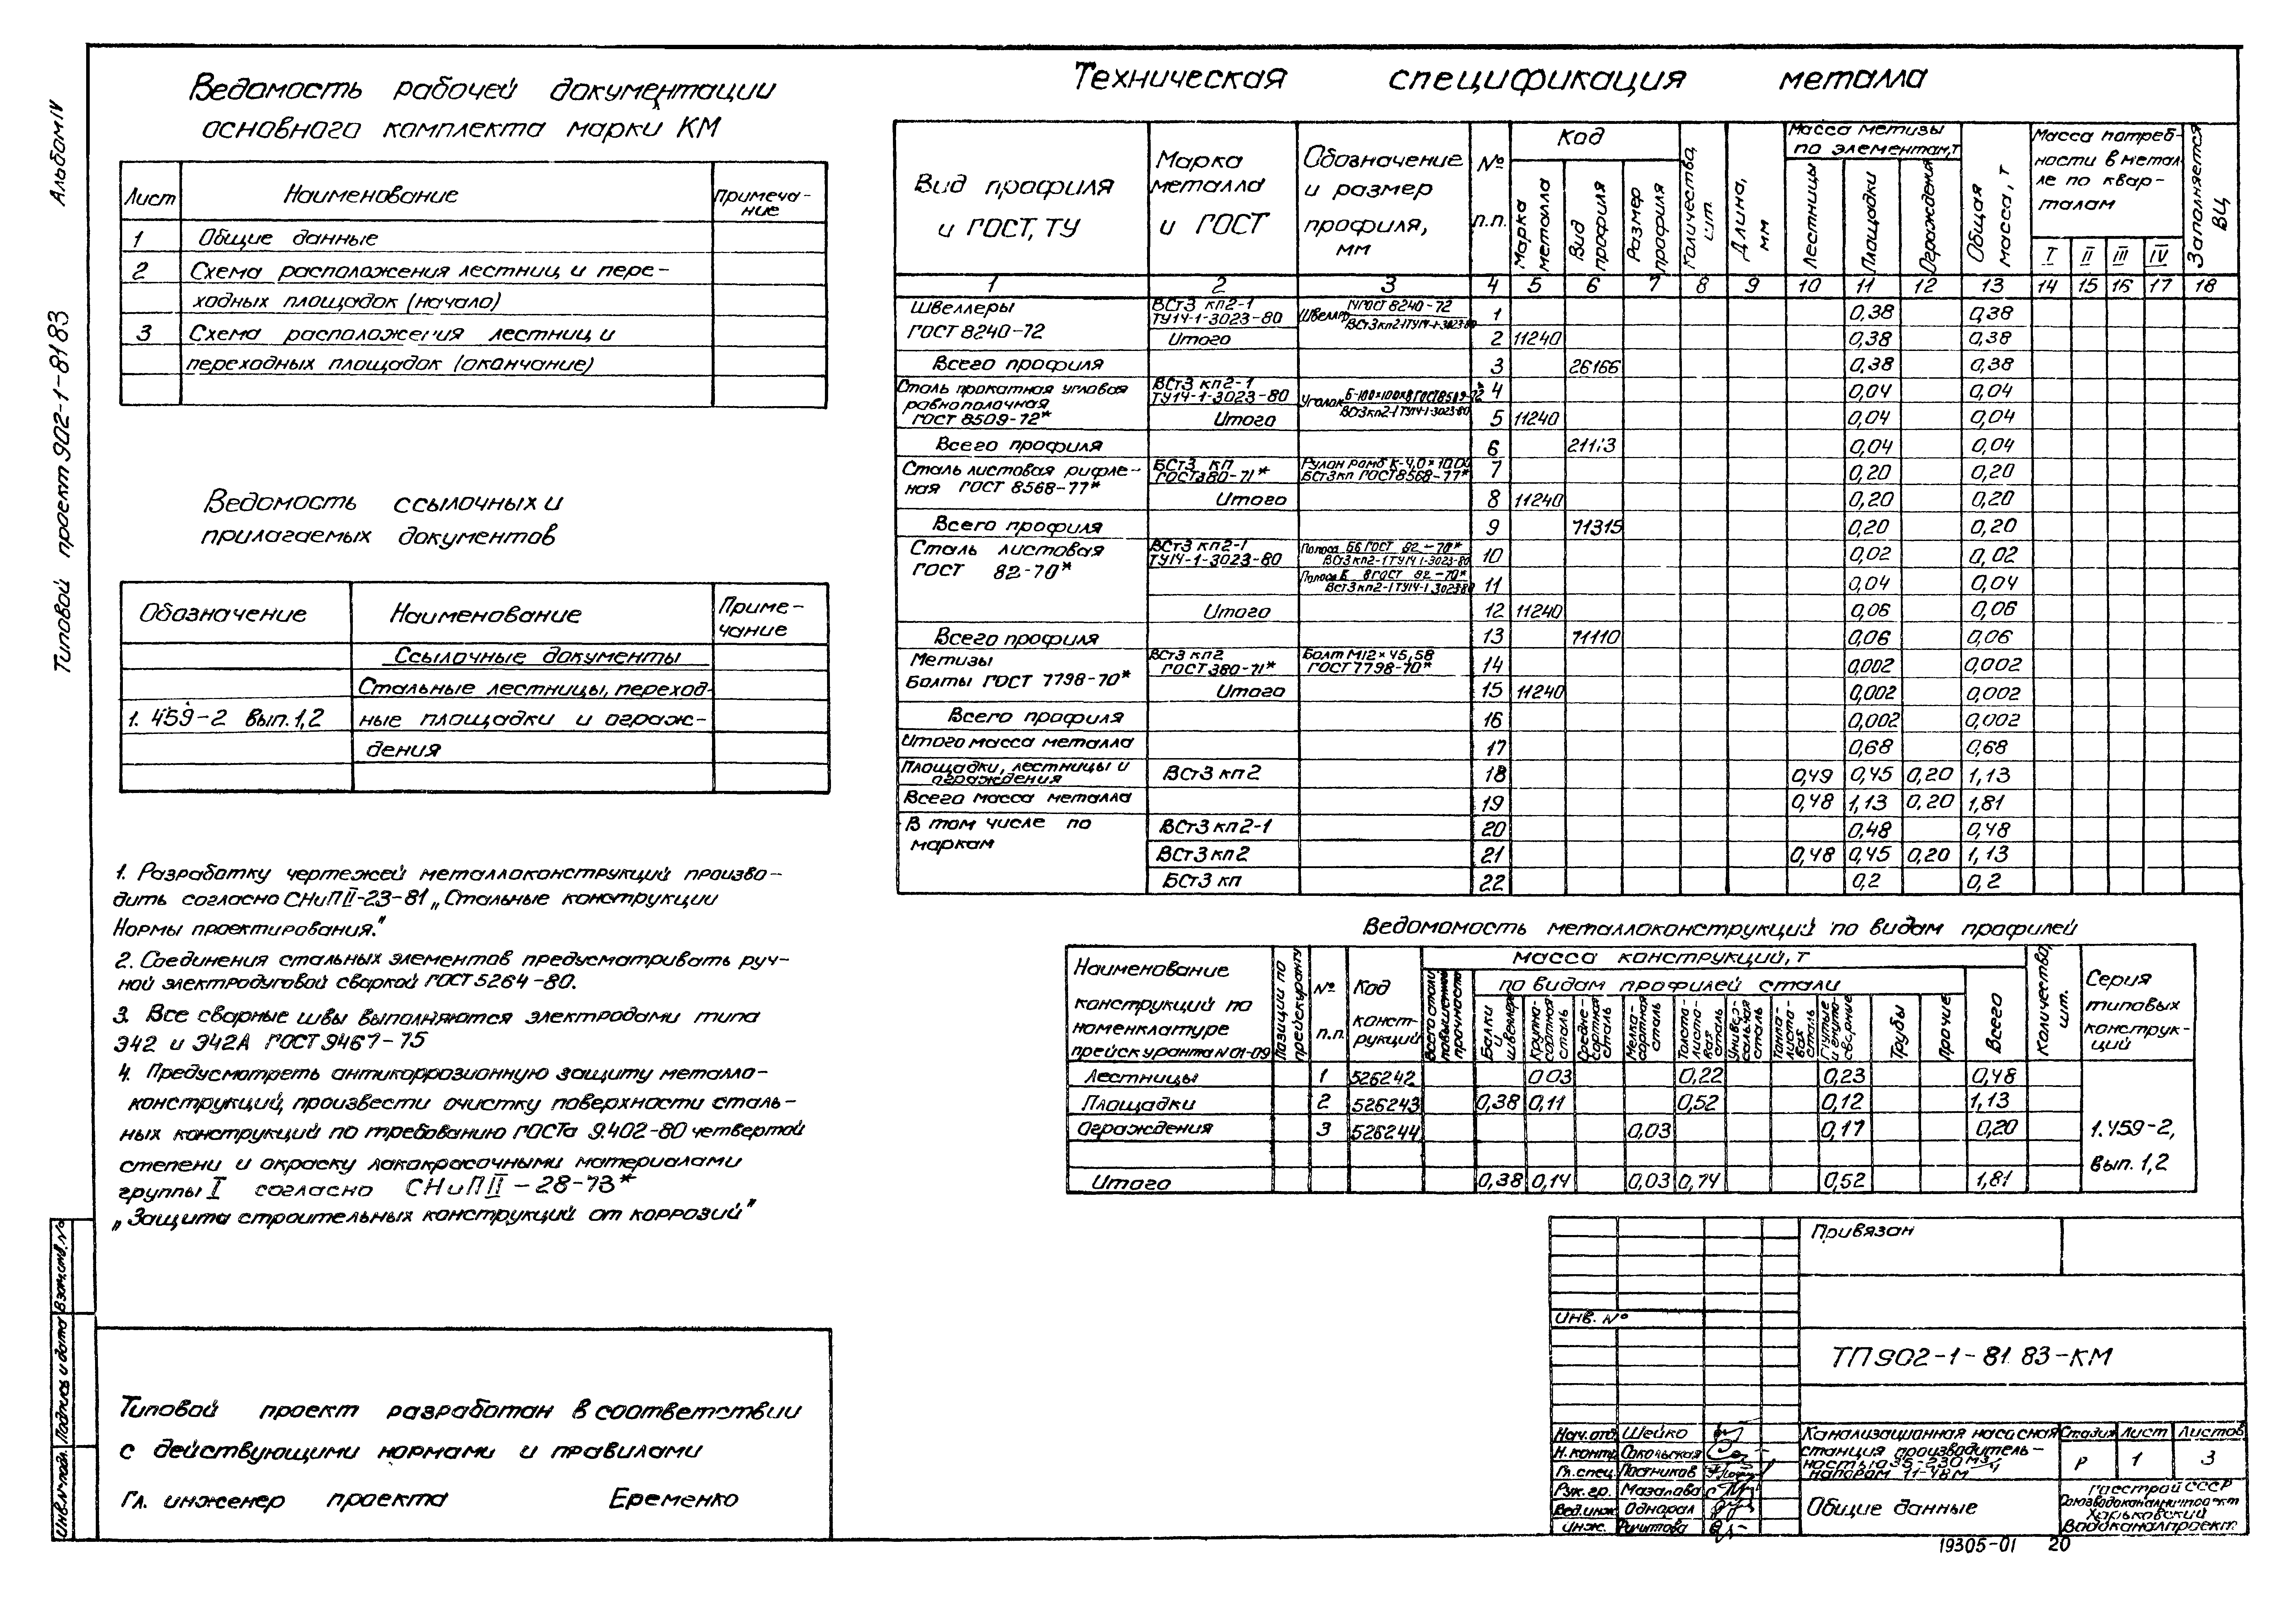 Альбом IV
Типовой проект 902-1-81 83
Ведомость рабочей документации
основного комплекта марки КМ
Лист Наименование Примеча-
ние
1 Общие данные
2 Схема расположения лестниц и пере-
ходных площадок (начало)
3 Схема расположения лестниц и
переходных площадок (окончание)
Ведомость ссылочных и
прилагаемых документов
Обозначение Наименование Приме-
чание
Ссылочные документы
Стальные лестницы, переход-
1.459-2 Вып.1,2 ные площадки и ограж-
дения
1. Разработку чертежей металлоконструкций произво-
дить согласно СНиП II-23-81 „Стальные конструкции
Нормы проектирования."
2. Соединения стальных элементов предусматривать руч-
ной электродуговой сваркой ГОСТ 5264-80.
3. Все сварные швы выполняются электродами типа
Э42 и Э42А ГОСТ 9467-75
4. Предусмотреть антикоррозионную защиту металло-
конструкций, произвести очистку поверхности сталь-
ных конструкций по требованию ГОСТа 9.402-80 четвертой
степени и окраску лакокрасочными материалами
группы I согласно СНиП II-28-73*
„Защита строительных конструкций от коррозий"
Типовой проект разработан в соответствии
с действующими нормами и правилами
Гл. инженер проекта Еременко
Инв.№ подл. Подпись и дата Взам.инв.№
Техническая спецификация металла
Вид профиля и ГОСТ, ТУ
Марка металла и ГОСТ
Обозначение и размер профиля, мм
№ п.п.
Код
Марка металла
Вид профиля
Размер профиля
Количество, шт.
Длина, мм
Масса метизы по элементам, т
Лестницы
Площадки
Ограждения
Общая масса, т
Масса потреб-
ности в метал-
ле по квар-
талам
I II III IV
Заполняется ВЦ
1 2 3 4 5 6 7 8 9 10 11 12 13 14 15 16 17 18
Швеллеры ВСт3 кп2-1 1 0,38 0,38
ГОСТ 8240-72 ТУ14-1-3023-80 Швеллер ГОСТ 8240-72 ВСт3кп2-1ТУ14-1-3023-80
Итого 2 11240 0,38 0,38
Всего профиля 3 26166 0,38 0,38
Сталь прокатная угловая ВСт3 кп2-1 4 0,04 0,04
равнополочная ТУ14-1-3023-80 Уголок Б-100×100×8 ГОСТ 8509-72* ВСт3кп2-1ТУ14-1-3023-80
ГОСТ 8509-72* Итого 5 11240 0,04 0,04
Всего профиля 6 0,04 0,04
Сталь листовая рифле- БСт3 кп Рулон ромб К-4,0× 7 0,20 0,20
ная ГОСТ 8568-77* ГОСТ380-71* БСт3кп ГОСТ8568-77*
Итого 8 11240 0,20 0,20
Всего профиля 9 71315 0,20 0,20
Сталь листовая ВСт3 кп2-1 Полоса Б6 ГОСТ 82-70* 10 0,02 0,02
ГОСТ 82-70* ТУ14-1-3023-80 ВСт3кп2-1ТУ14-1-3023-80
Полоса Б 8 ГОСТ 82-70* 11 0,04 0,04
ВСт3кп2-1ТУ14-1-3023-80
Итого 12 11240 0,06 0,06
Всего профиля 13 71110 0,06 0,06
Метизы ВСт3 кп2 Болт М12×45,58 14 0,002 0,002
Болты ГОСТ 7798-70* ГОСТ 380-71* ГОСТ 7798-70*
Итого 15 11240 0,002 0,002
Всего профиля 16 0,002 0,002
Итого масса металла 17 0,68 0,68
Площадки, лестницы и
ограждения ВСт3 кп2 18 0,49 0,45 0,20 1,13
Всего масса металла 19 0,48 1,13 0,20 1,81
В том числе по ВСт3 кп2-1 20 0,48 0,48
маркам ВСт3 кп2 21 0,48 0,45 0,20 1,13
БСт3 кп 22 0,2 0,2
Ведомомость металлоконструкций по видам профилей
Наименование
конструкций по
номенклатуре
прейскуранта №01-09
Позиции по прейскуранту
№ п.п.
Код конст-
рукций
Масса конструкций, т
Всего стали повышенной прочности
по видам профилей стали
Балки и швеллеры
Крупно-
сортная сталь
Средне-
сортная сталь
Мелко-
сортная сталь
Толсто-
листо-
вая сталь
Универ-
сальная сталь
Тонко-
листо-
вая сталь
Гнутые и гнуто-
сварные
Трубы
Прочие
Всего
Количество, шт.
Серия
типовых
конструк-
ций
Лестницы 1 526242 0 03 0,22 0,23 0,48
Площадки 2 526243 0,38 0,11 0,52 0,12 1,13
Ограждения 3 526244 0,03 0,17 0,20 1.459-2,
вып. 1,2
Итого 0,38 0,14 0,03 0,74 0,52 1,81
Привязан
Инв. №
ТП 902-1-81 83-КМ
Нач.отд. Шейко
Н.контр. Сокольская
Гл.спец. Постников
Рук.гр. Мазалова
Вед.инж. Однорал
инж.
Канализационная насосная
станция производитель-
ностью 35-230 м3/ч
напором 11-48 м
Стадия Лист Листов
Р 1 3
Общие данные
Госстрой СССР
Союзводоканалниипроект
Харьковский
Водоканалпроект
19305-01 20